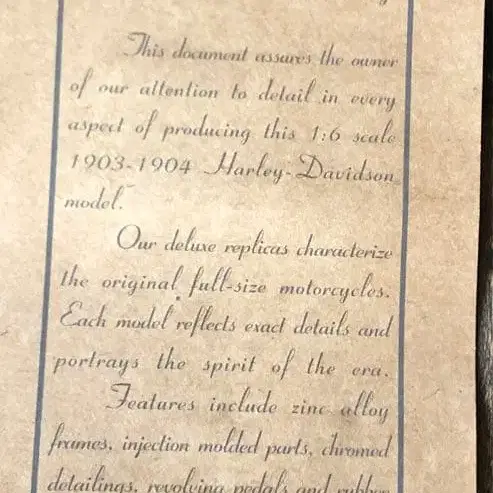 This document assures the owner
of our attention to detail in every
aspect of producing this 1:6 scale
1903-1904 Harley-Davidson
model.
Our deluxe replicas characterize
the original full-size motorcycles.
Each model reflects exact details and
portrays the spirit of the era.
Features include zinc alloy
frames, injection molded parts, chromed
detailings, revolving pedals and rubber